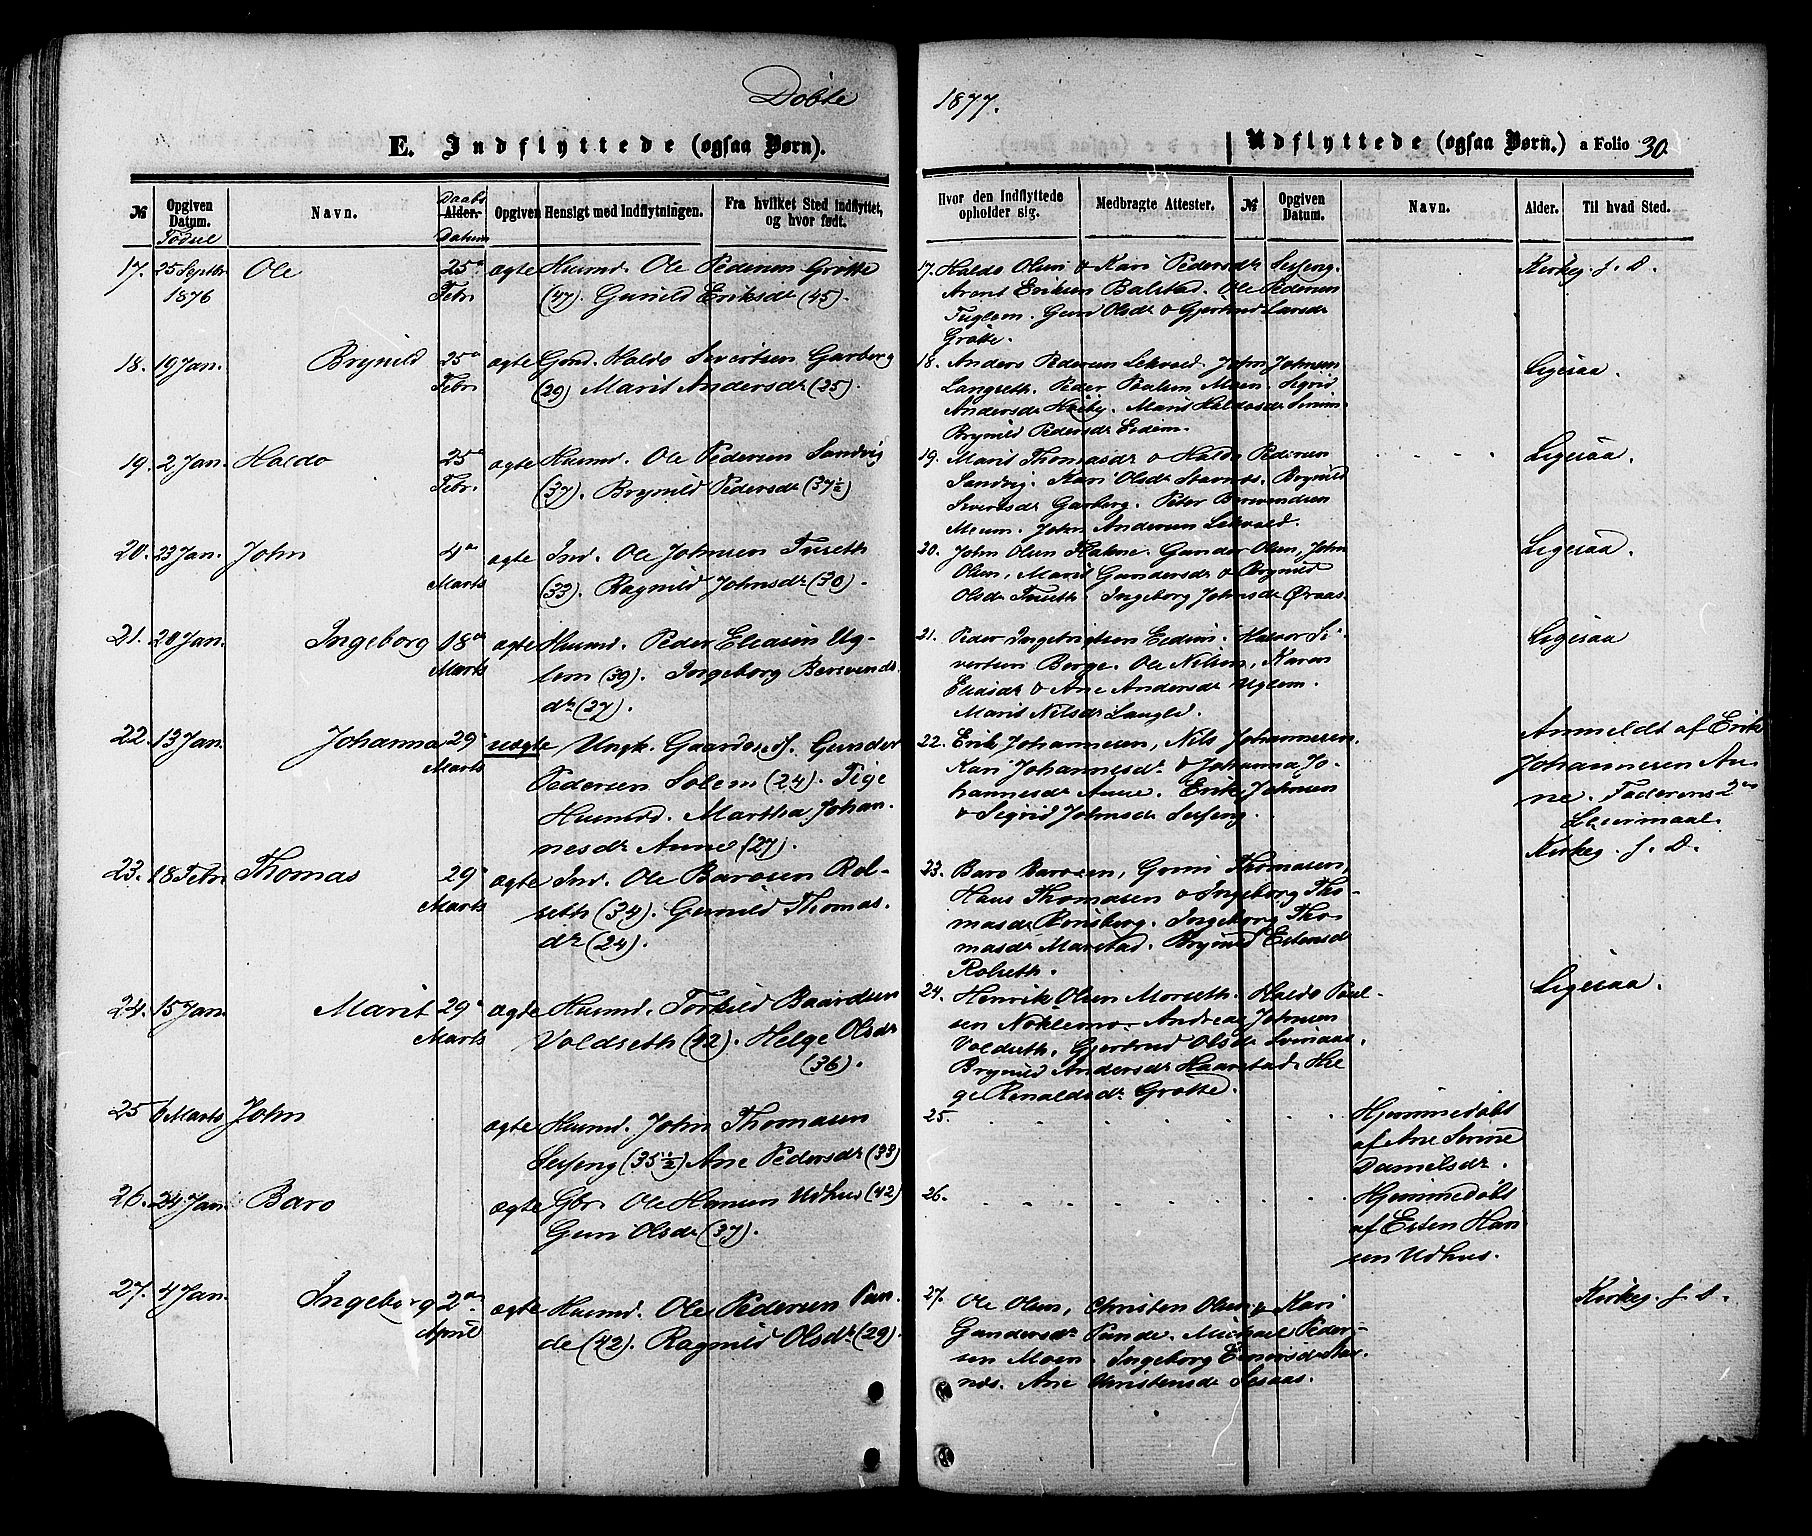 Døbte
1877.
E. Indflyttede (ogsaa Børn).
Udflyttede (ogsaa Børn.) a Folio 30.
№
Opgiven Datum.
Fødsel
Navn.
Daabs
Alder.
Datum
Opgiven Hensigt med Indflytningen.
Fra hvilket Sted indflyttet, og hvor født.
Hvor den Indflyttede opholder sig.
Medbragte Attester.
№
Opgiven Datum.
Navn.
Alder.
Til hvad Sted.
17. 25 Septbr 1876 Ole 25de Febr
ægte Huumd. Ole Pedersen Grøtte
(47). Gunild Eriksdr (45).
17. Haldo Olsen & Kari Pedersdr Sesseng.
Arent Eriksen Balstad. Ole Pedersen
Tuglem. Guri Olsdr & Gjertrud Larsdr
Grøtte.
Kirkeg. f. D.
18. 19 Jan. Brynild 25de Febr
ægte Gmd. Haldo Sivertsen Garberg
(29) Marit Andersdr (25).
18. Anders Pedersen Lekvold. John Johnsen
Langseth. Peder Paulsen Moen. Sigrid
Andersdr Høiby. Marit Haldosdr
Brynild Pedersdr Eidem.
Ligesaa.
19. 2 Jan. Haldo 25de Febr.
ægte Huumd. Ole Pedersen Sandvig
(37). Brynild Pedersdr (37½)
19. Marit Thomasdr & Haldo Pedersen
Sandvig. Kari Olsdr Stamnæs. Brynild
Sivertsdr Garberg. Peter Bersvendsen
Meum. John Andersen Lekvold.
Ligesaa.
20. 23 Jan. John 4de Marts
ægte Ind. Ole Johnsen Tuseth
(33). Ragnild Johnsdr (30).
20. John Olsen Flakne. Gunder Olsen, John
Olsen, Marit Gundersdr & Brynild
Olsdr Tuseth. Ingeborg Johnsdr Øraas.
Ligesaa.
21. 20 Jan. Ingeborg 18de Marts
ægte Huumd. Peder Eliasen Ug-
lem (39). Ingeborg Bersvends-
dr (27).
21. Peder Ingebrigtsen Eidem. Halvor Si-
vertsen Berge. Ole Nilsen, Karen
Eliasdr & Ane Andersdr Uglem.
Marit Nilsdr Langli.
Ligesaa
22. 13 Jan. Johanna 29de Marts
uægte Ungk. Gaardss. Gunder
Pedersen Solem (24). Pige
Huumd. Martha Johan-
nesdr Aune (27).
22. Erik Johannesen, Nils Johannesen,
Kari Johannesdr & Johanna Jo-
hannesdr Aune. Erik Johnsen
& Sigrid Johnsdr Sesseng.
Anmeldt af Erik
Johannesen Au-
ne. Faderens 2det
Leiermaal.
Kirkeg. f. D.
23. 18 Febr. Thomas 29de Marts
ægte Ind. Ole Barosen Rol-
seth (34). Gunild Thomas-
dr (24).
23. Baro Barosen, Guni Thomasen,
Hans Thomasen & Ingeborg Tho-
masdr Rønsberg. Ingeborg Tho-
masdr Marstad. Brynild Estensdr
Rolseth.
24. 15 Jan. Marit 29de Marts
ægte Huumd. Torkild Baardsen
Voldseth (42). Helge Olsdr
(36).
24. Henrik Olsen Morseth. Haldo Paul-
sen Noklemo. Andreas Johnsen
Voldseth. Gjertrud Olsdr Sviraas.
Brynild Andersdr Haarstad. Hel-
ge Renaldsdr Grøtte.
Ligesaa.
25 6 Marts John
ægte Huumd. John Thomasen
Sesseng (35½) Ane Pedersdr (33)
25.
Hjemmedøbt
af Ane Serine
Danielsdr.
26. 24 Jan. Baro
ægte Gbr. Ole Hansen Udhus (42)
Guru Olsdr (37).
26.
Hjemmedøbt
af Esten Han-
sen Udhus.
27. 4 Jan. Ingeborg 2den April
ægte Huumd. Ole Pedersen Pun-
de (42). Ragnild Olsdr (29).
27. Ole Olsen, Christen Olsen & Kari
Gundersdr Punde. Michael Peder-
sen Moen. Ingeborg Einarsdr Stam-
næs. Ane Christensdr Sesaas.
Kirkeg. f. D.